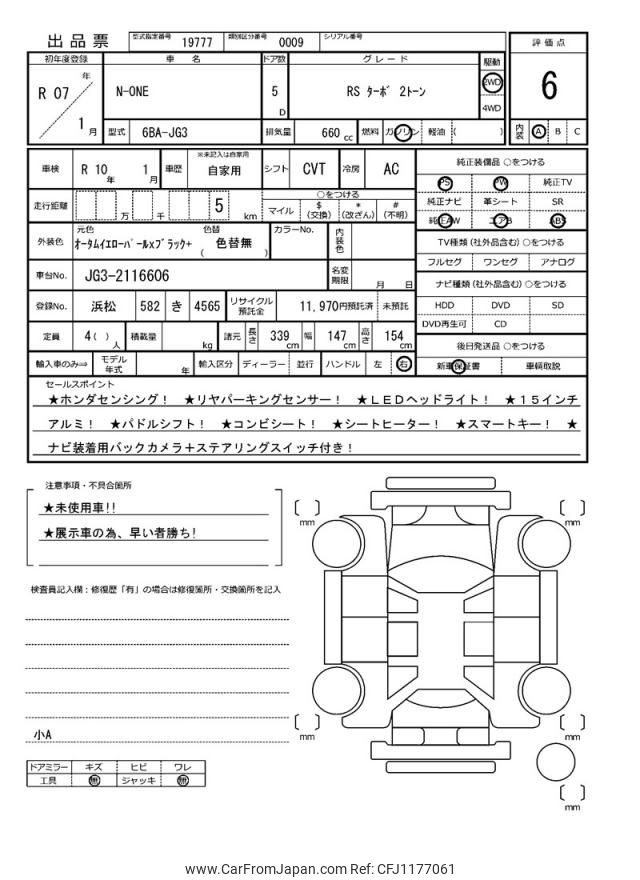 出品票 型式指定番号 19777 類別区分番号 0009 シリアル番号
評価点
6
初年度登録 車名 ドア数 グレード 駆動
R 07 年 1 月
N-ONE 5 D RS ﾀｰﾎﾞ 2ﾄｰﾝ 2WD
4WD
型式 6BA-JG3 排気量 660 cc 燃料 ガソリン 軽油 ( )
内装 A B C
車検 R 10 年 1 月 車歴 ※未記入は自家用 自家用 シフト CVT 冷房 AC
純正装備品 ○をつける
PS PW 純正TV
純正ナビ 革シート SR
純正AW エアB ABS
走行距離 万 千 5 km
○をつける
マイル $(交換) *(改ざん) #(不明)
外装色 元色 ｵｰﾀﾑｲｴﾛｰﾊﾟｰﾙxﾌﾞﾗｯｸ+ 色替 ( 色替無 ) カラーNo. 内装色
TV種類 (社外品含む) ○をつける
フルセグ ワンセグ アナログ
車台No. JG3-2116606 名変期限 月 日
ナビ種類 (社外品含む) ○をつける
HDD DVD SD
DVD再生可 CD
登録No. 浜松 582 き 4565 リサイクル預託金 11,970円預託済 未預託
定員 4( ) 人 積載量 kg 諸元 長さ 339 cm 幅 147 cm 高さ 154 cm
後日発送品 ○をつける
新車保証書 車輌取説
輸入車のみ⇒ モデル年式 年 輸入区分 ディーラー 並行 ハンドル 左 右
セールスポイント
★ホンダセンシング！ ★リヤパーキングセンサー！ ★ＬＥＤヘッドライト！ ★１５インチ
アルミ！ ★パドルシフト！ ★コンビシート！ ★シートヒーター！ ★スマートキー！ ★
ナビ装着用バックカメラ＋ステアリングスイッチ付き！
注意事項・不具合箇所
★未使用車!!
★展示車の為、早い者勝ち!
検査員記入欄：修復歴「有」の場合は修復箇所・交換箇所を記入
小A
ドアミラー キズ ヒビ ワレ
工具 無 ジャッキ 無
[ ] mm
[ ] mm
[ ] mm
[ ] mm
[ ] mm
www.CarFromJapan.com Ref: CFJ1177061